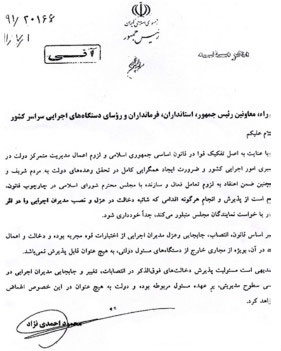 جمهوری اسلامی ایران
رئیس جمهور
۹۱/۲۰۱۶۶
آنـی
راء، معاونین رئیس جمهور، استانداران، فرمانداران و رؤسای دستگاه‌های اجرایی سراسر کشور
لام علیکم
با عنایت به اصل تفکیک قوا در قانون اساسی جمهوری اسلامی و لزوم اعمال مدیریت متمرکز دولت در
امور اجرایی کشور و ضرورت ایجاد همگرایی کامل در تحقق وعده‌های دولت به مردم شریف و
ضمن اعتقاد به لزوم تعامل فعال و سازنده با مجلس محترم شورای اسلامی در چارچوب قانون،
است از پذیرش و انجام هرگونه اقدامی که شائبه دخالت در عزل و نصب مدیران اجرایی را در نظر
خواست نمایندگان مجلس متبلور می‌کند، جداً خودداری شود.
اساس قانون، انتصاب، جابجایی و عزل مدیران اجرایی از اختیارات قوه مجریه بوده و دخالت و اعمال
در آن، بویژه از مجاری خارج از دستگاه‌های مسئول دولتی، به هیچ عنوان قابل پذیرش نمی‌باشد.
بدیهی است مسئولیت پذیرش دخالت‌های فوق‌الذکر در انتصابات، تغییر و جابجایی مدیران اجرایی در
سطوح مدیریتی، بر عهده مسئول مربوطه بوده و دولت به هیچ عنوان در این خصوص اغماض
اهد کرد.
محمود احمدی نژاد